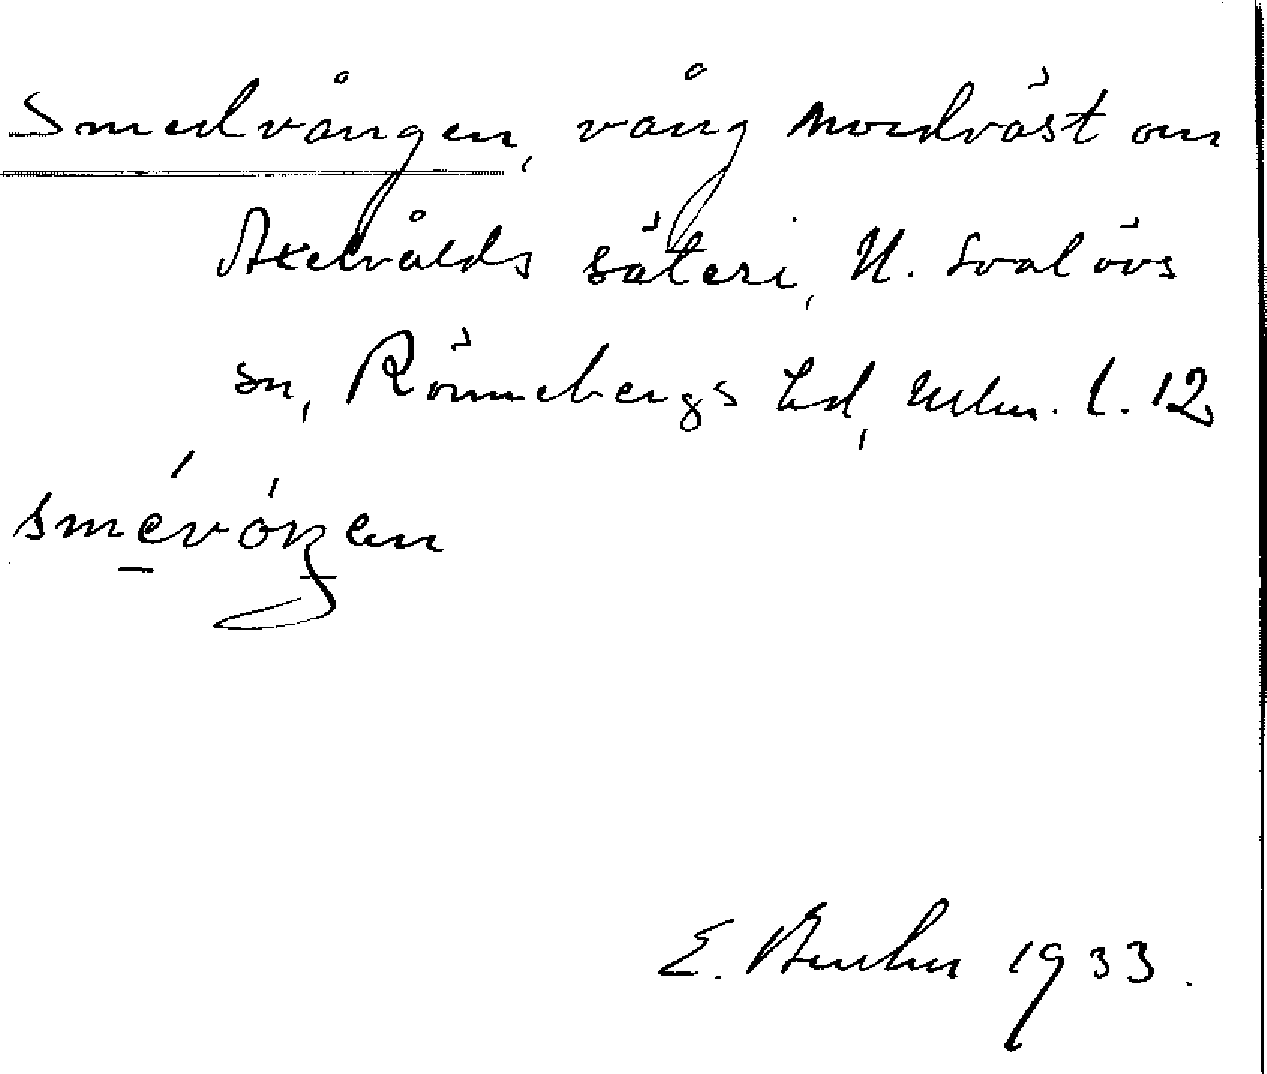 Smedvången, vång nordväst om
Axelvålds säteri, N. Svalövs
sn, Rönnebergs hd, Mlm. l. 12
smévóŋen
E. 1933.